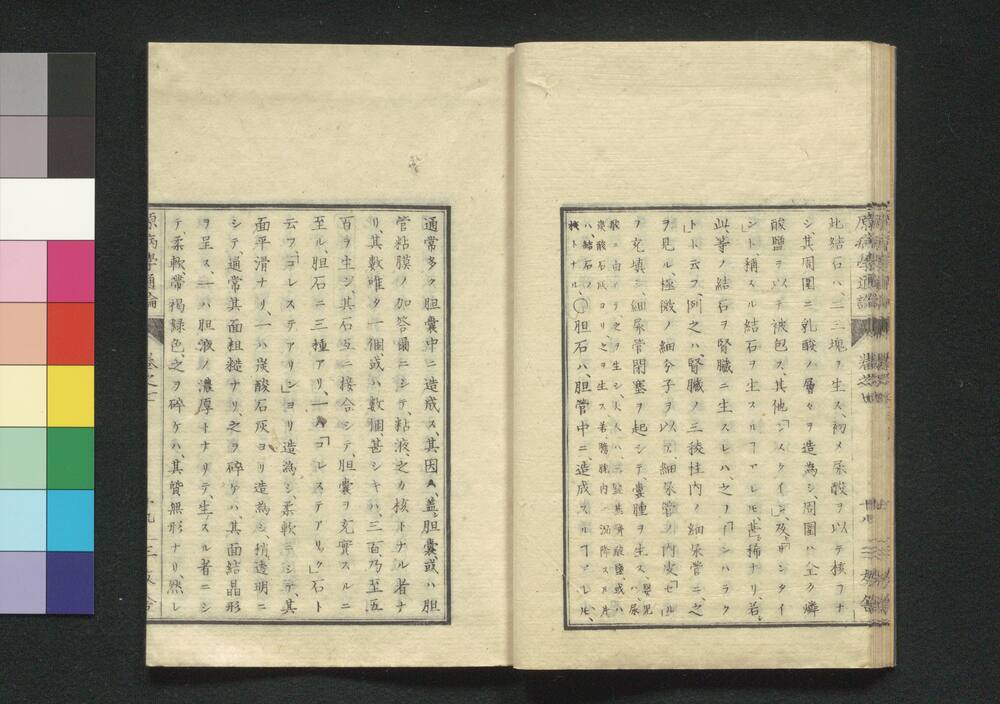 此結石ハ、二三塊ヲ生ス、初メ尿酸ヲ以テ核ヲナ
シ、其周圍ニ乳酸ノ層々ヲ造為シ、周圍ハ全ク燐
酸鹽ヲ以テ被包ス、其他「シスタイン」及ヒ「キサンタイ
ン」ト稱スル結石ヲ生スルヿアレ𪜈甚タ稀ナリ、若シ
此等ノ結石ヲ腎臓ニ生スレハ、之ヲ「インハラク
ト」ト云フ、例之ハ、腎臓ノ三稜柱内ノ細尿管ニ、之
ヲ見ル、極微ノ細分子ヲ以テ、細尿管ノ内皮「セル」
ヲ充填シ、細尿管閉塞ヲ起シテ、囊腫ヲ生ス、嬰児ハ、尿
酸ニ由リテ之ヲ生シ、大人ハ、三鹽基燐酸鹽、或ハ
炭酸石灰ヨリ之ヲ生ス若膀胱内ニ沉降スレハ片
ハ、結石ノ
核トナル、○胆石ハ、胆管中ニ、造成スルヿアレ𪜈、
通常多ク胆囊中ニ造成ス、其因ハ、蓋シ胆囊、或ハ胆
管粘膜ノ加答爾ニシテ、粘液、之カ核トナル者ナ
リ、其數唯タ一個、或ハ數個、甚シキハ、三百乃至五
百ヲ生シ、其石互ニ接合シテ、胆囊ヲ充實スルニ
至ル、胆石ニ三種アリ、一ハ「コレステアリック」石ト
云フ「コレステアリン」ヨリ造為シ、柔軟ニシテ、其
面平滑ナリ、一ハ炭酸石灰ヨリ造為シ、稍透明ニ
シテ、通常其面粗糙ナリ、之ヲ碎ケハ、其面結晶形
ヲ呈ス、一ハ胆液ノ濃厚トナリテ、生スル者ニシ
テ、柔軟、帶褐緑色、之ヲ碎ケハ、其質無形ナリ、然レ
原病學通論